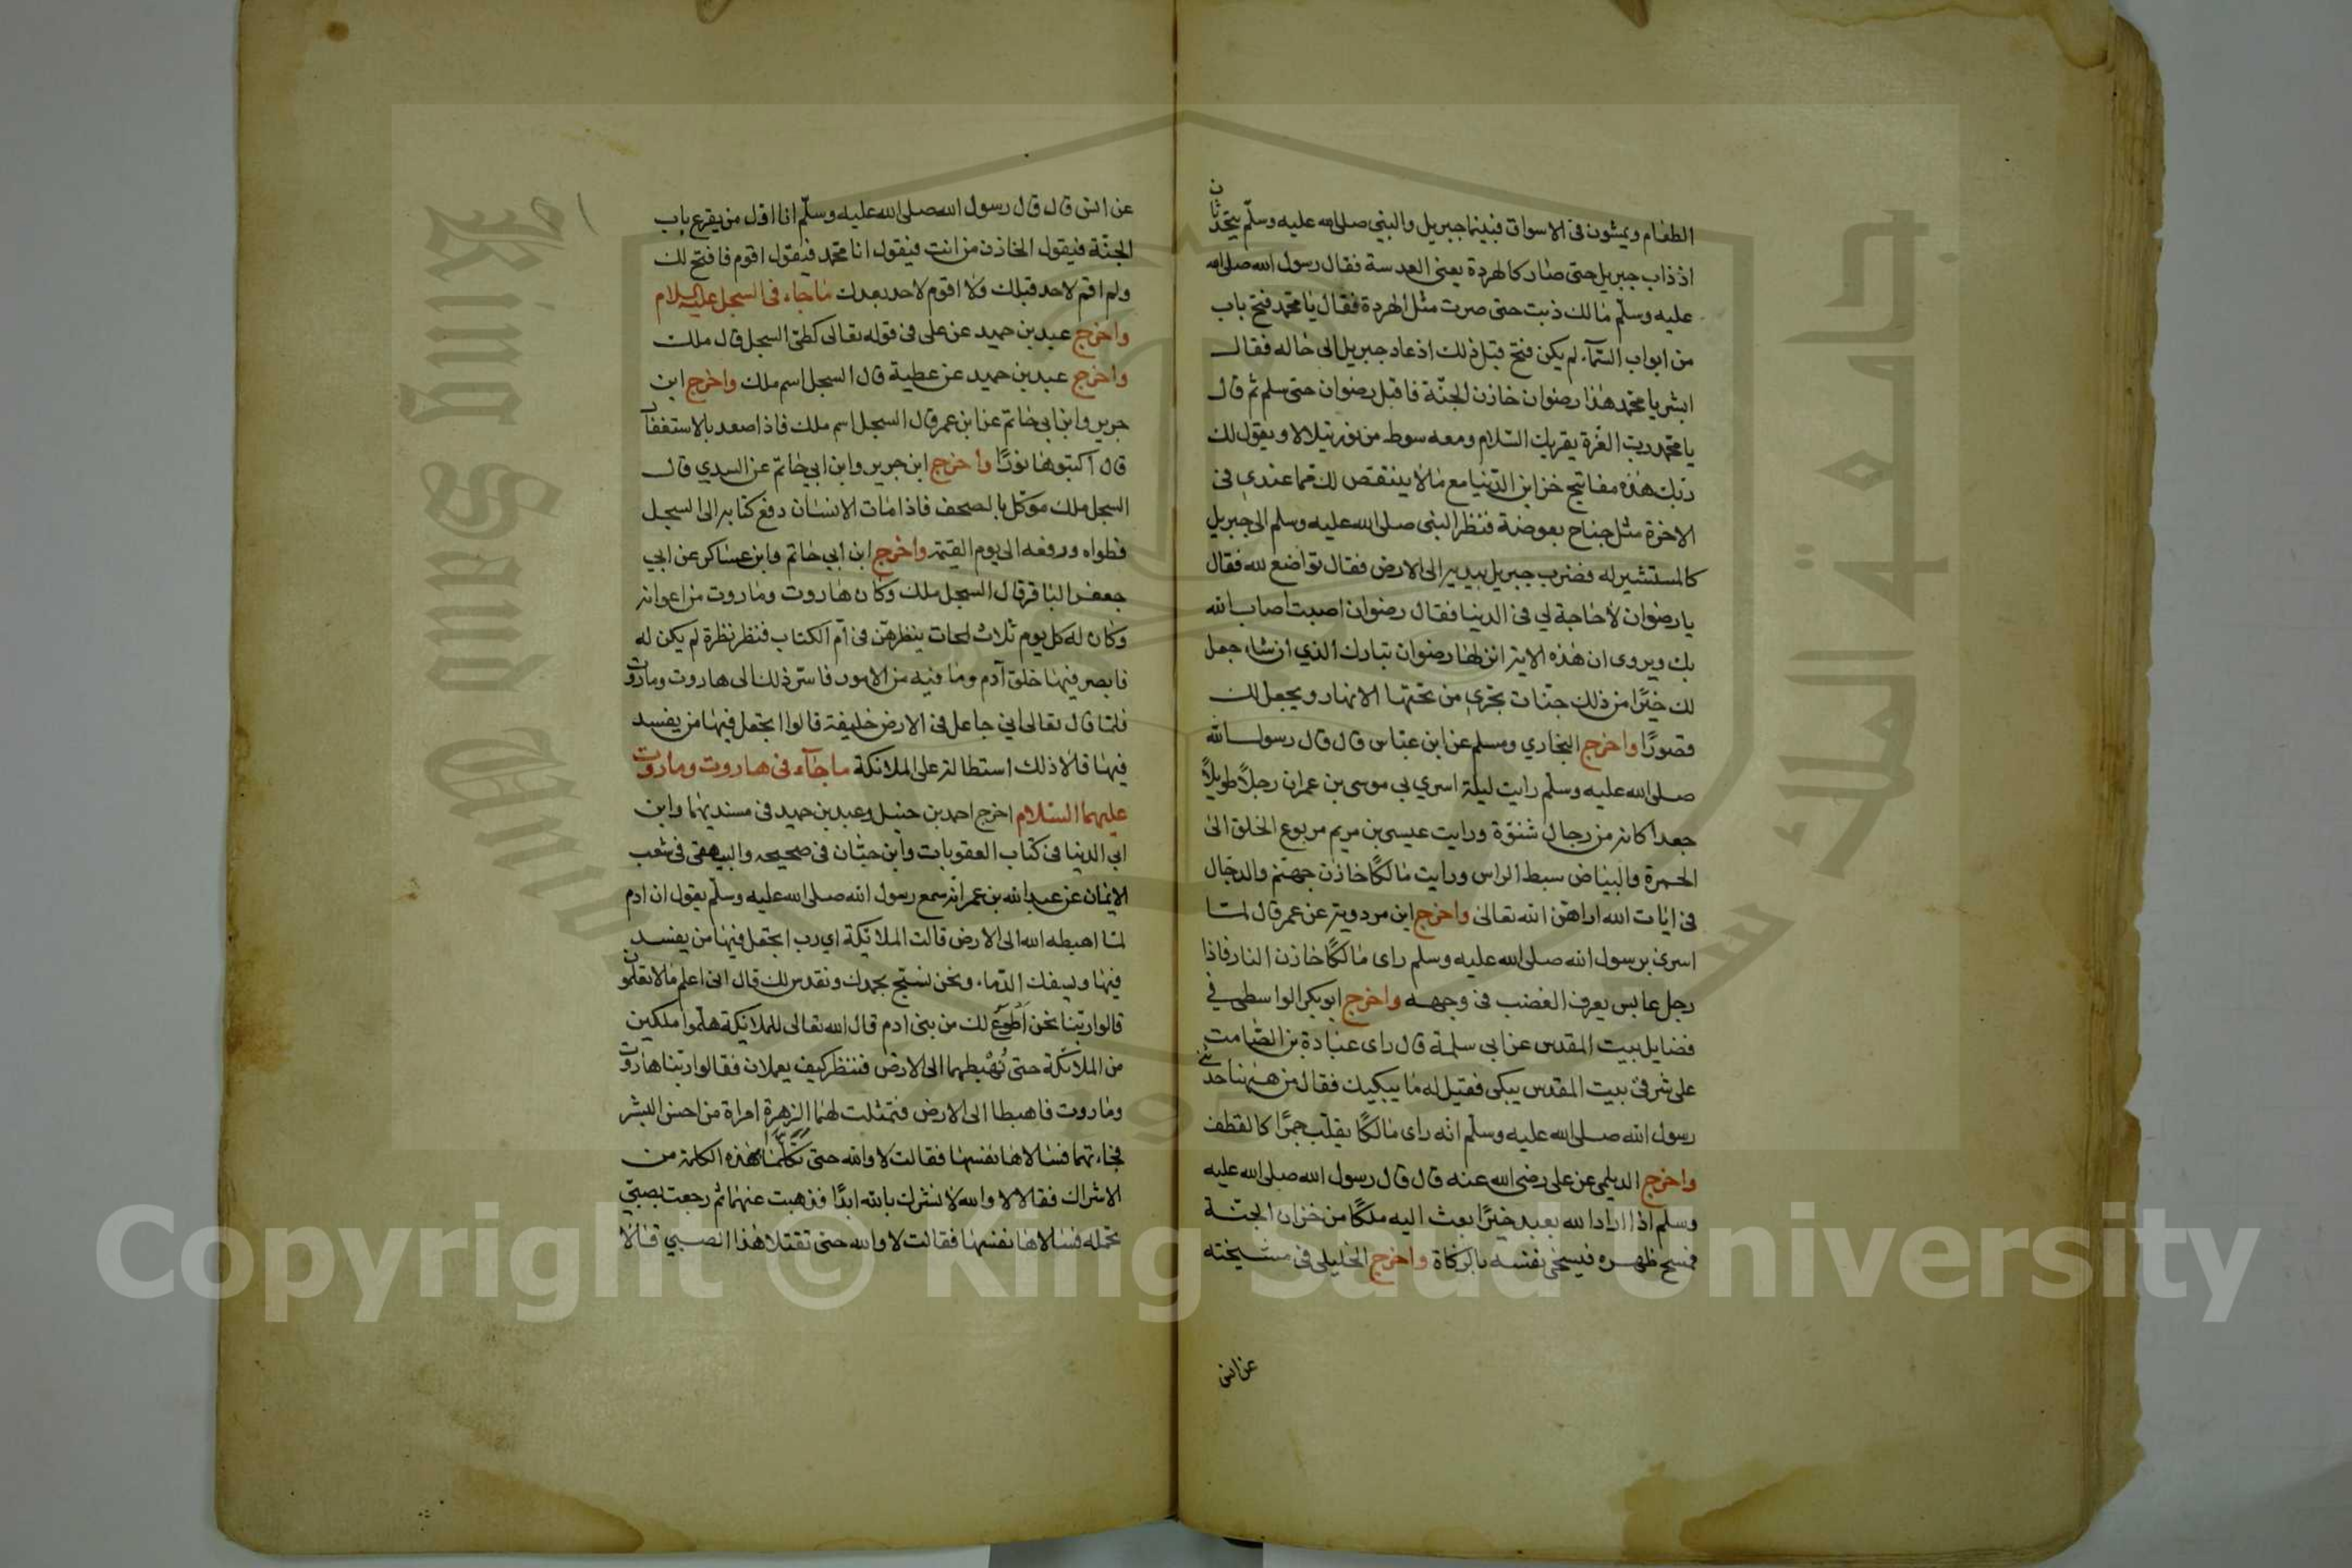 الطعام ويمشون في الاسواق فبينما جبريل والنبي صلى الله عليه وسلم يتحدثان
اذ ذاب جبريل حتى صار كالهردة يعني العدسة فقال رسول الله صلى الله
عليه وسلم مالك ذبت حتى صرت مثل الهردة فقال يا محمد فتح باب
من ابواب السمآء لم يكن فتح قبل ذلك اذ عاد جبريل الى حاله فقال
ابشر يا محمد هذا رضوان خازن الجنة فاقبل رضوان حتى سلم ثم قال
يا محمد رب العزة يقريك السلام ومعه سوط من نور يتلالا ويقول لك
ربك هذه مفاتيح خزاين الدنيا مع مالا ينتقص لك مما عندي في
الاخرة مثل جناح بعوضة فنظر النبي صلى الله عليه وسلم الى جبريل
كالمستشير له فضرب جبريل بيديه الى الارض فقال تواضع لله فقال
يا رضوان لاحاجة لي في الدنيا فقال رضوان اصبت اصاب الله
بك ويروى ان هذه الاية انزلها رضوان تبارك الذي ان شاء جعل
لك خيرًا من ذلك جنات تجري من تحتها الانهار ويجعل لك
قصورًا واخرج البخاري ومسلم عن ابن عباس قال قال رسول الله
صلى الله عليه وسلم رايت ليلة اسري بي موسى بن عمران رجلاً طويلاً
جعدا كانه من رجال شنوة ورايت عيسى بن مريم مربوع الخلق الى
الحمرة والبياض سبط الراس ورايت مالكًا خازن جهنم والدجال
في ايات الله اراهن الله تعالى واخرج ابن مردويه عن عمر قال لما
اسرى برسول الله صلى الله عليه وسلم راى مالكًا خازن النار فاذا
رجل عابس يعرف الغضب في وجهه واخرج ابو بكر الواسطي في
فضايل بيت المقدس عن ابي سلمة قال راى عبادة بن الصامت
على شرفي بيت المقدس يبكي فقيل له ما يبكيك فقال من هنا حدثني
رسول الله صلى الله عليه وسلم انه راى مالكًا يقلب جمرًا كالقطف
واخرج الديلمي عن على رضى الله عنه قال قال رسول الله صلى الله عليه
وسلم اذا اراد الله بعبد خيرًا بعث اليه ملكًا من خزان الجنة
فمسح ظهره فيسخى نفسه بالزكاة واخرج الخليلي في مشيخته
عن انس
عن انس قال قال رسول الله صلى الله عليه وسلم انا اول من يقرع باب
الجنة فيقول الخازن من انت فيقول انا محمد فيقول اقوم فافتح لك
ولم اقم لاحد قبلك ولا اقوم لاحد بعدك ماجاء في السجل عليه السلام
واخرج عبد بن حميد عن على في قوله تعالى كطى السجل قال ملك
واخرج عبد بن حميد عن عطية قال السجل اسم ملك واخرج ابن
جرير وابن ابي حاتم عن ابن عمر قال السجل اسم ملك فاذا صعد بالاستغفار
قال اكتبوها نورًا واخرج ابن جرير وابن ابي حاتم عن السدي قال
السجل ملك موكل بالصحف فاذا مات الانسان دفع كتابه الى السجل
فطواه ورفعه الى يوم القيمة واخرج ابن ابي حاتم وابن عساكر عن ابي
جعفر الباقر قال السجل ملك وكان هاروت وماروت من اعوانه
وكان له كل يوم ثلاث لمحات ينظرهن في ام الكتاب فنظر نظرة لم يكن له
فابصر فيها خلق آدم وما فيه من الامور فاسر ذلك الى هاروت وماروت
فلما قال تعالى اني جاعل في الارض خليفة قالوا اتجعل فيها من يفسد
فيها قالا ذلك استطالة على الملائكة ماجآء في هاروت وماروت
عليهما السلام اخرج احمد بن حنبل وعبد بن حميد في مسنديهما وابن
ابي الدنيا في كتاب العقوبات وابن حبان في صحيحه والبيهقي في شعب
الايمان عن عبد الله بن عمر انه سمع رسول الله صلى الله عليه وسلم يقول ان ادم
لما اهبطه الله الى الارض قالت الملائكة اي رب اتجعل فيها من يفسد
فيها ويسفك الدماء ونحن نسبح بحمدك ونقدس لك قال اني اعلم مالا تعلمون
قالوا ربنا نحن اطوع لك من بني ادم قال الله تعالى للملايكة هلموا ملكين
من الملائكة حتى نهبطهما الى الارض فننظر كيف يعملان فقالوا ربنا هاروت
وماروت فاهبطا الى الارض فتمثلت لهما الزهرة امراة من احسن البشر
فجاءتهما فسالاها نفسها فقالت لا والله حتى تكلما بهذه الكلمة من
الاشراك فقالا لا والله لا نشرك بالله ابدًا فذهبت عنهما ثم رجعت بصبي
تحمله فسالاها نفسها فقالت لا والله حتى تقتلا هذا الصبي قالا
King Saud University
جامعة الملك سعود
1957
Copyright © King Saud University